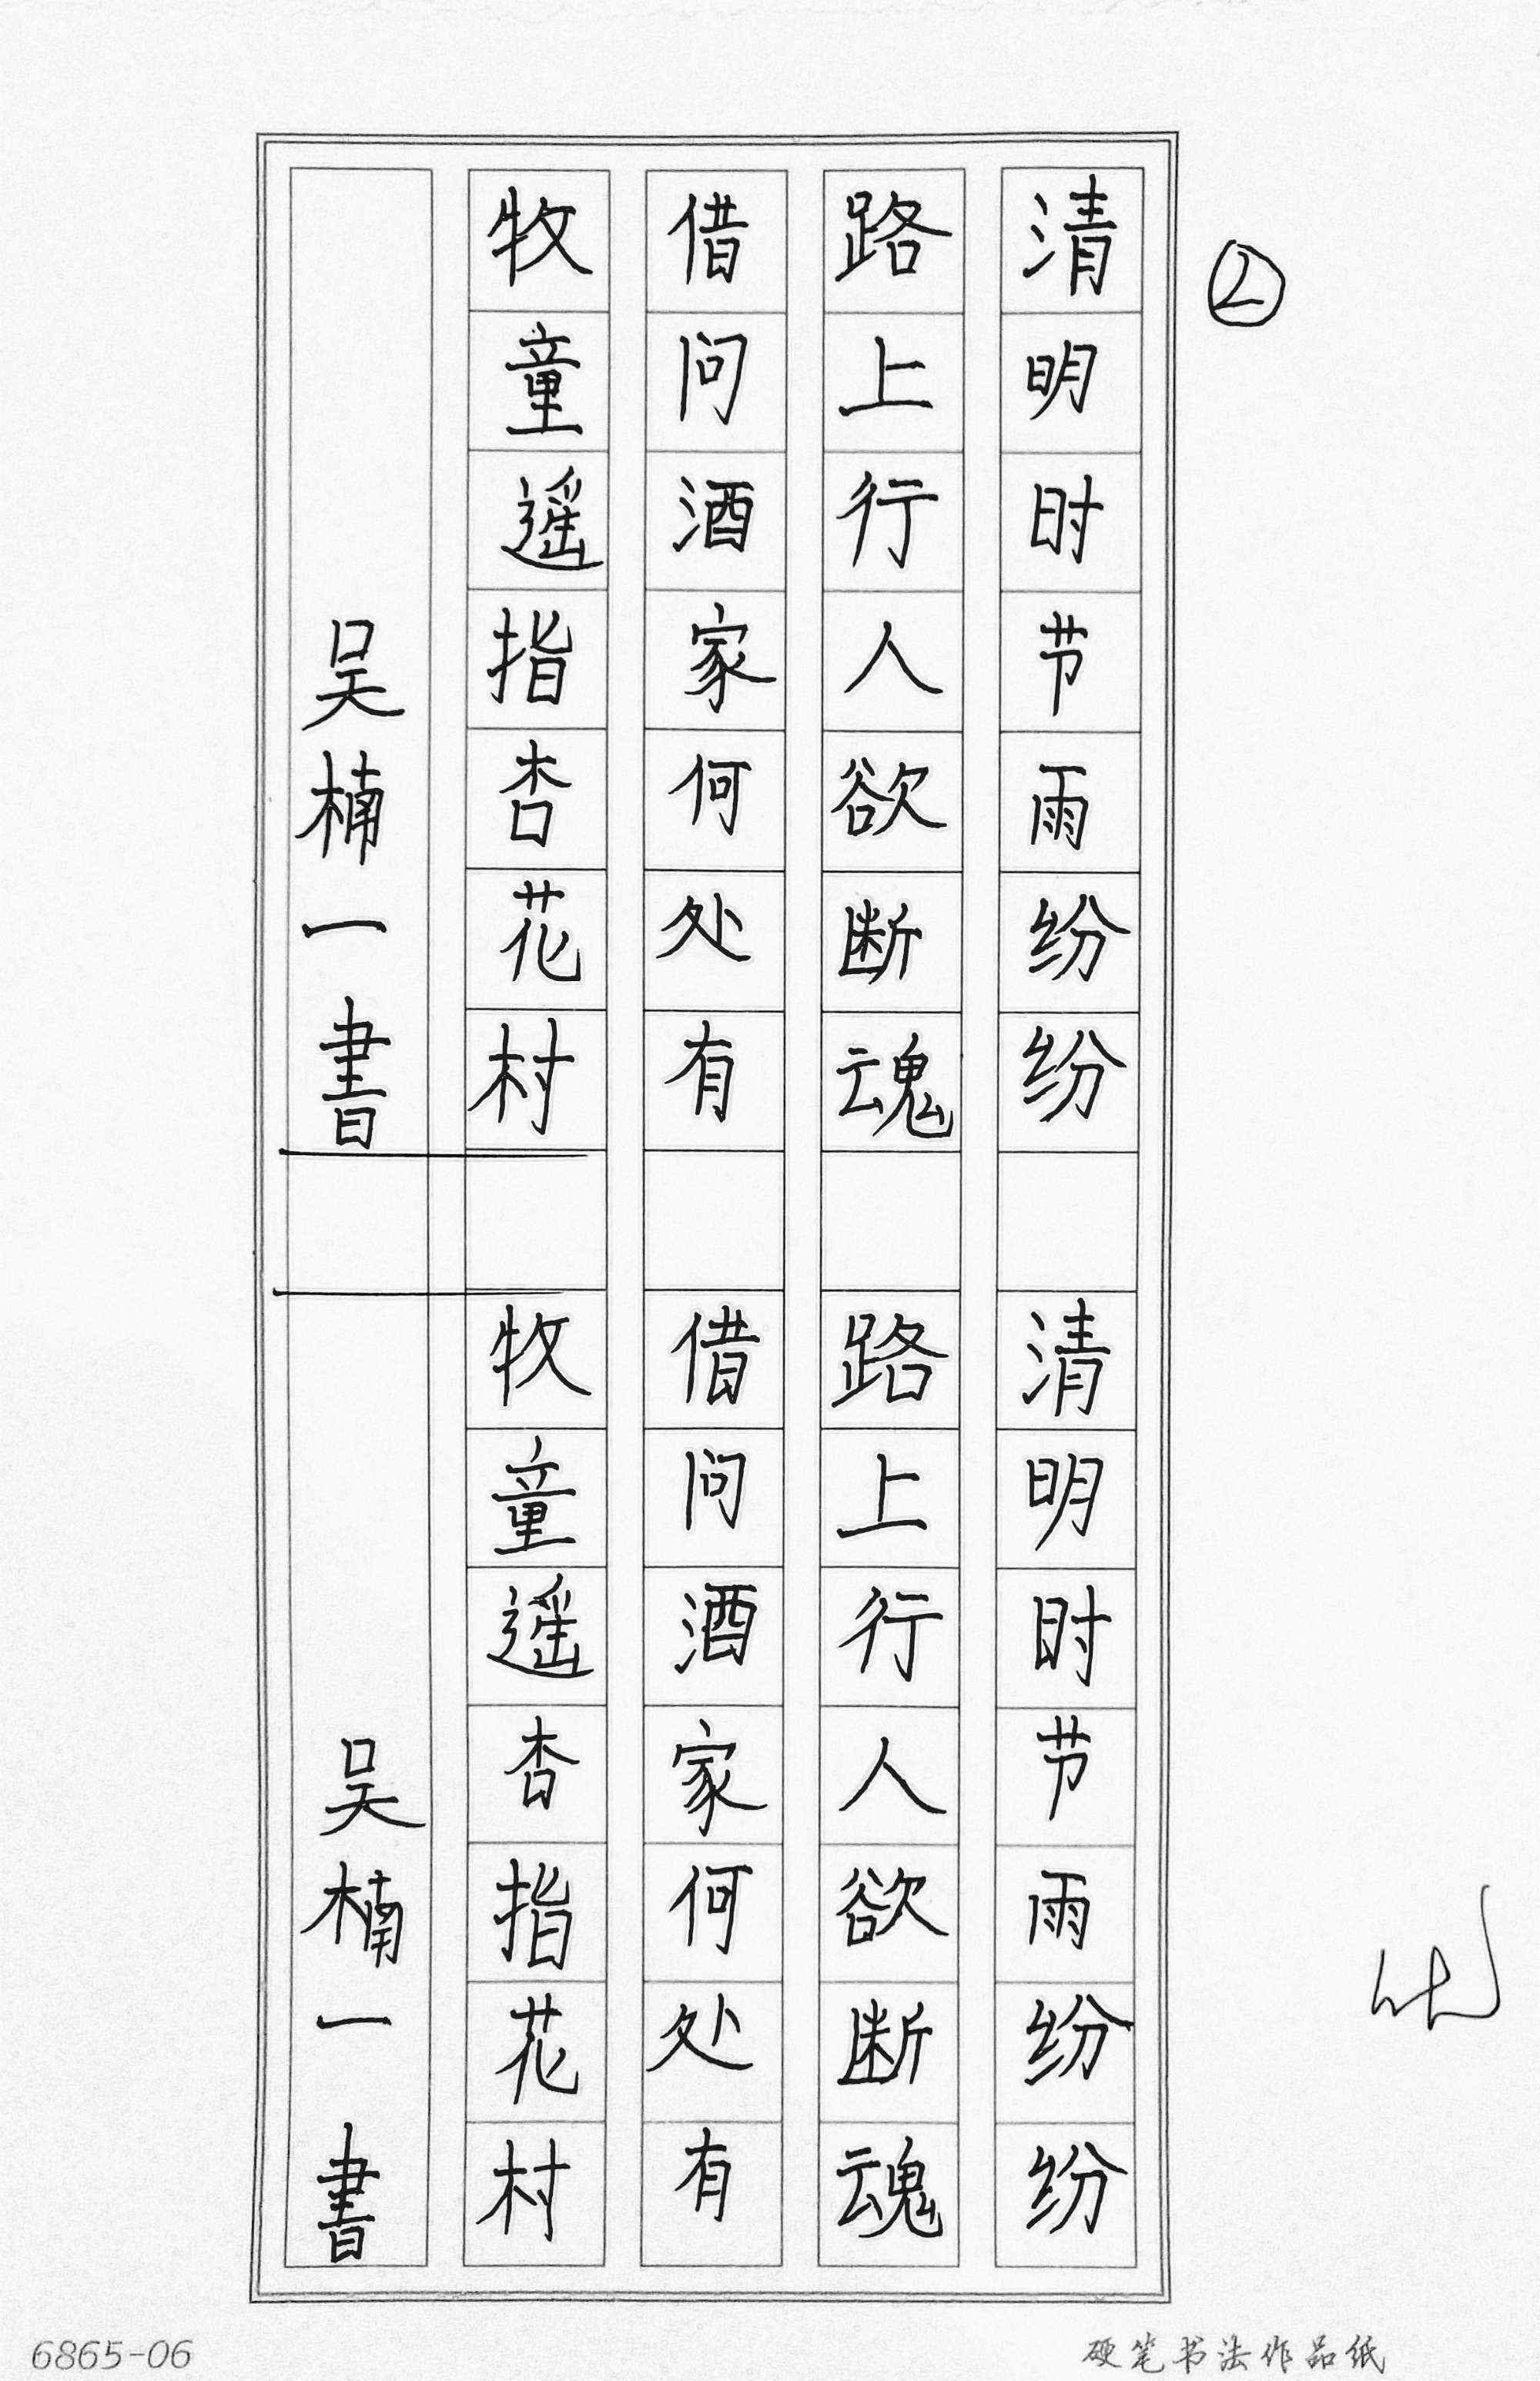 ②
清明时节雨纷纷
路上行人欲断魂
借问酒家何处有
牧童遥指杏花村
吴楠一書
清明时节雨纷纷
路上行人欲断魂
借问酒家何处有
牧童遥杏指花村
吴楠一書
6865-06
硬笔书法作品纸